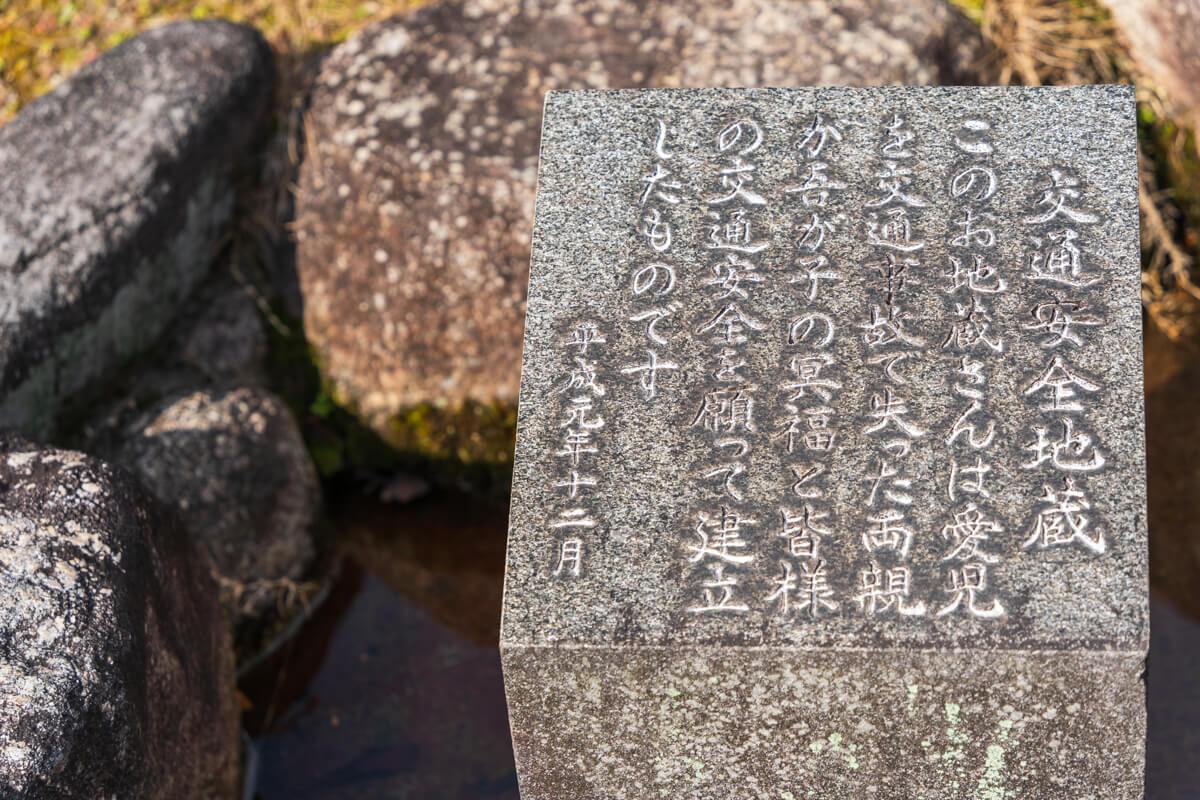 交通安全地蔵
このお地蔵さんは愛児
を交通事故で失った両親
が吾が子の冥福と皆様
の交通安全を願って建立
したものです
平成元年十二月